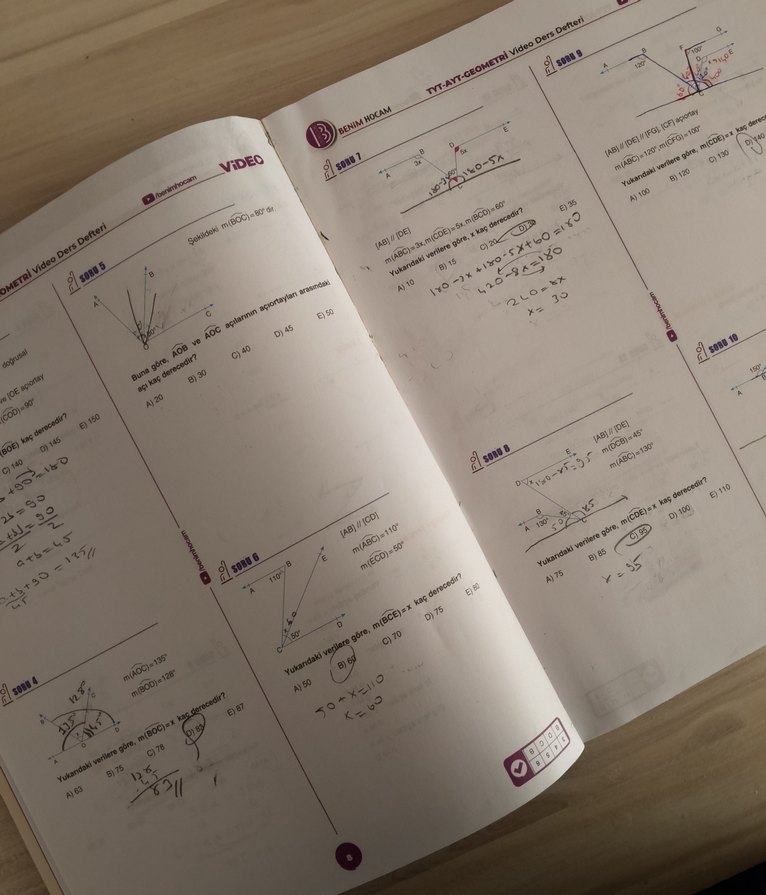 OMETRİ Video Ders Defteri
/benimhocam
VİDEO
doğrusal
ve [OE açıortay
(COD)=90°
(BOE) kaç derecedir?
C) 140 D) 145 E) 150
2b = 90
a+b = 45
SORU 4
m(AOC)=135°
m(BOD)=128°
128°
135°
A
B
C
D
O
Yukarıdaki verilere göre, m(BOC)=x kaç derecedir?
A) 63 B) 75 C) 78 D) 83 E) 87
SORU 5
Şekildeki m(BOC)=80° dir.
A
B
C
O
80°
Buna göre, AOB ve AOC açılarının açıortayları arasındaki
açı kaç derecedir?
A) 20 B) 30 C) 40 D) 45 E) 50
/benimhocam
SORU 6
[AB] // [CD]
m(ABC)=110°
m(ECD)=50°
110°
B
E
A
x
50°
C
D
Yukarıdaki verilere göre, m(BCE)=x kaç derecedir?
A) 50 B) 60 C) 70 D) 75 E) 80
50 + x = 110
x = 60
8
B
BENİM HOCAM
TYT-AYT-GEOMETRİ Video Ders Defteri
SORU 7
A
B
3x
D
5x
E
60°
C
180-5x
[AB] // [DE]
m(ABC)=3x, m(CDE)=5x, m(BCD)=60°
Yukarıdaki verilere göre, x kaç derecedir?
A) 10 B) 15 C) 20 D) 30 E) 35
180-3x+180-5x+60=180
420-8x=180
240=8x
x= 30
SORU 8
[AB] // [DE]
m(DCB)=45°
m(ABC)=130°
D
x
E
A
B
130°
50
C
85
Yukarıdaki verilere göre, m(CDE)=x kaç derecedir?
A) 75 B) 85 C) 95 D) 100 E) 110
x = 95
/benimhocam
SORU 9
A
B
120°
F
G
100°
D
E
C
[AB] // [DE] // [FG], [CF] açıortay
m(ABC)=120°, m(CFG)=100°
Yukarıdaki verilere göre, m(CDE)=x kaç derece
A) 100 B) 120 C) 130 D) 140
SORU 10
150°
A